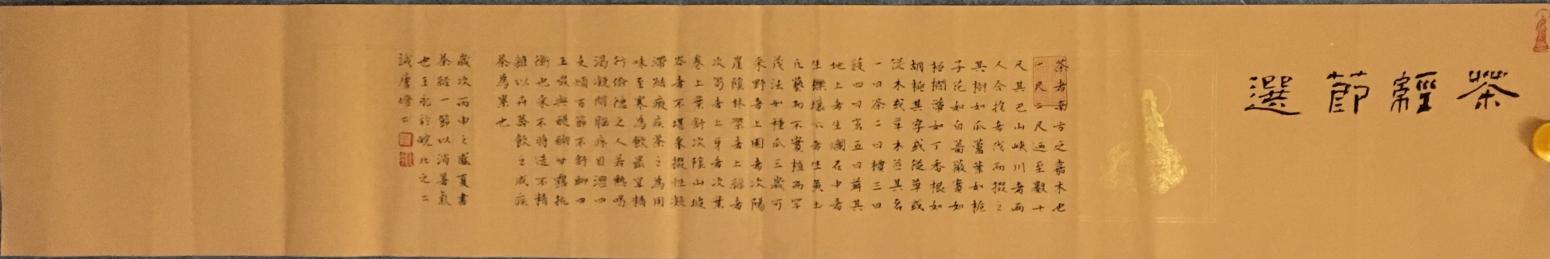 茶經節選
茶者南方之嘉木也
一尺二尺迺至數十
尺其巴山峽川者兩
人合抱者伐而掇之
其樹如瓜蘆葉如梔
子花如白薔薇實如
栟櫚蒂如丁香根如
胡桃其字或從草或
從木或草木并其名
一曰茶二曰檟三曰
蔎四曰茗五曰荈其
地上者生爛石中者
生櫟壤下者生黃土
凡藝而不實植而罕
茂法如種瓜三歲可
采野者上園者次陽
崖陰林紫者上綠者
次筍者上芽者次葉
卷上葉舒次陰山坡
谷者不堪采掇性凝
滯結瘕疾茶之為用
味至寒為飲最宜精
行儉德之人若熱喝
渴凝悶腦疼目澀四
支煩百節不舒聊四
五啜與醍醐甘露抗
衡也采不時造不精
雜以卉莽飲之成疾
茶為累也
歲次丙申之盛夏書
茶經一節以消暑氣
也王於皖北之二
誠廬燈下